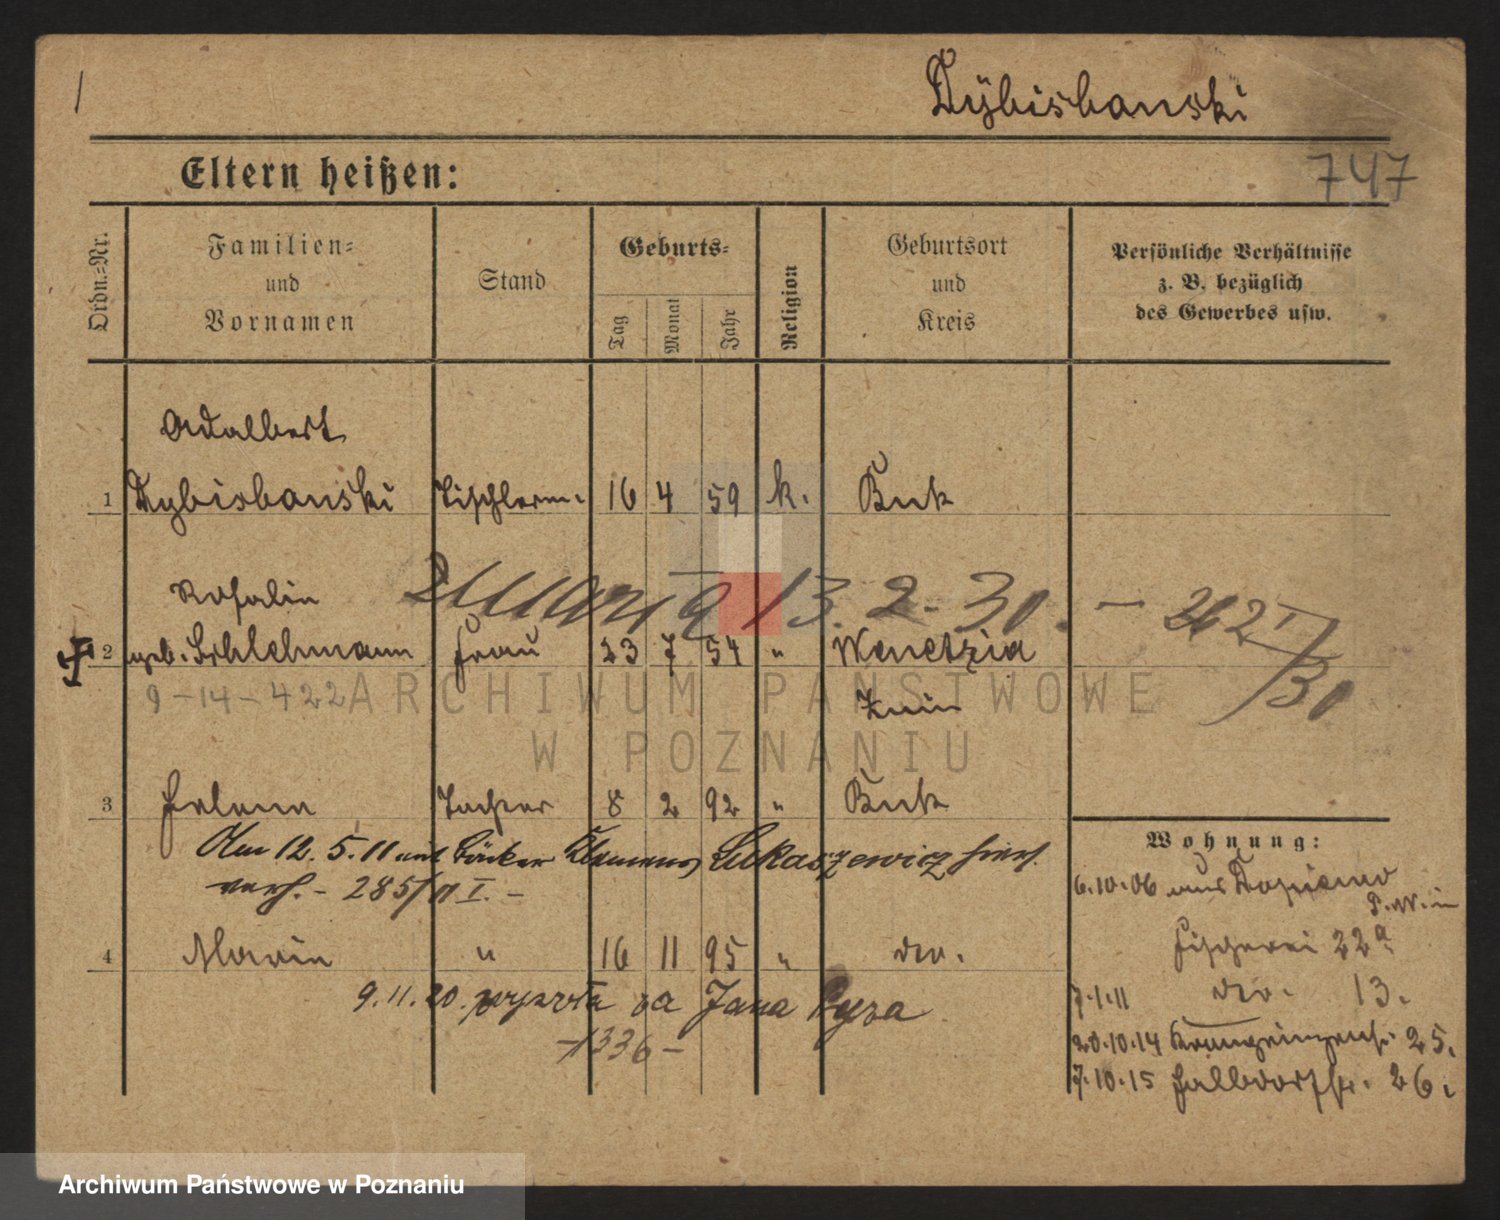 Dybisbanski
Eltern heißen:
747
Ordn.=Nr.
Familien=
und
Vornamen
Stand
Geburts=
Tag
Monat
Jahr
Religion
Geburtsort
und
Kreis
Persönliche Verhältnisse
z. B. bezüglich
des Gewerbes usw.
Adalbert
1 Dybisbanski Tischlerm. 16 4 59 k. Buk
Rosalie
Zmarła 13.2.30. — 262 I/30
2 geb. Frau 23 7 54 " Wenetzia
9-14-422 Znin
3 Helene Tochter 8 2 92 " Buk
Am 12.5.11 mit Bäcker Clemens Lukaszewicz hier
verh. - 285/11 I. -
4 Marie " 16 11 95 " do.
9.11.20. wyszła za Jana Pyza
-1336-
Wohnung:
6.10.06 aus Dopiewo
P. W. in
Fischerei 22a
7.1.11 do. 13.
20.10.14 Kronprinzenstr. 25.
7.10.15 Halbdorfstr. 26.
ARCHIWUM PAŃSTWOWE
W POZNANIU
Archiwum Państwowe w Poznaniu